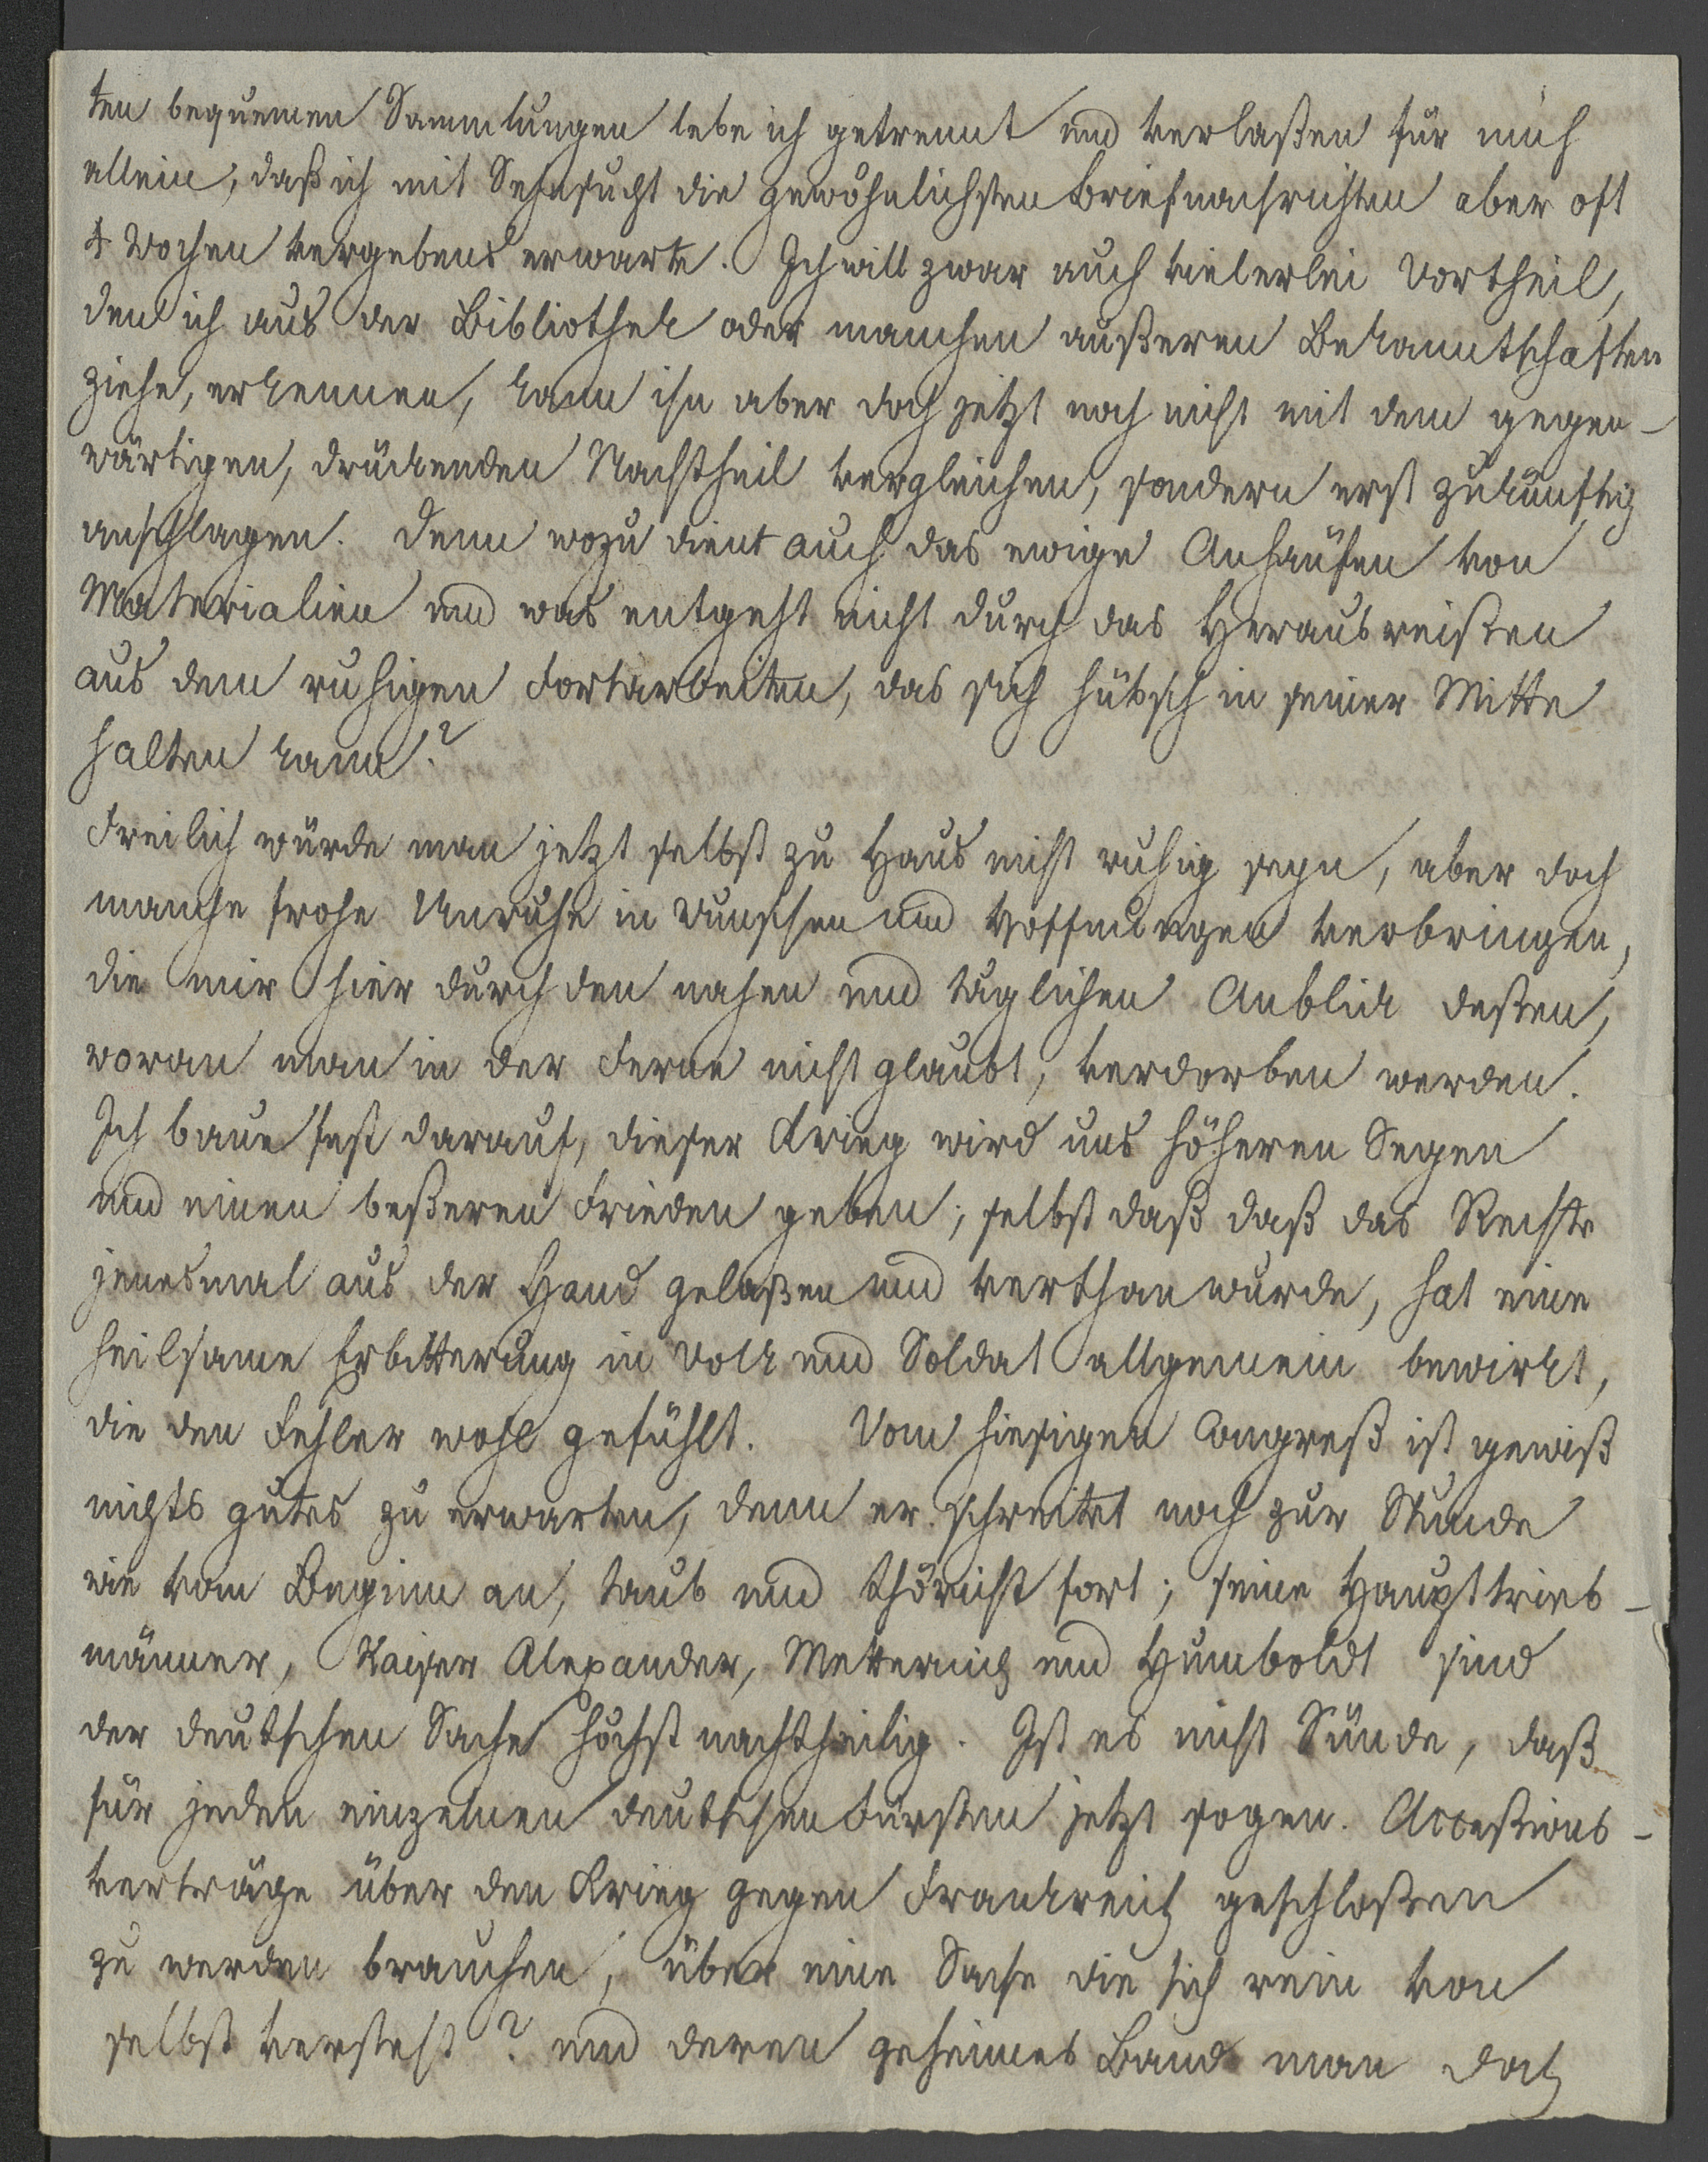 ten bequemen Sammlungen lebe ich getrennt und verlaßen für mich
allein, daß ich mit Sehnsucht die gewöhnlichsten Briefnachrichten aber oft
4 Wochen vergebens erwarte. Ich will zwar auch vielerlei Vortheil,
den ich aus der Bibliothek oder manchen äußeren Bekanntschaften
ziehe, erkennen, kann ihn aber doch jetzt noch nicht mit dem gegen-
wärtigen, drückenden Nachtheil vergleichen, sondern erst zukünftig
anschlagen. Denn wozu dient auch das ewige Anhäufen von
Materialien und was entgeht nicht durch das Herausreißen
aus dem ruhigen Fortarbeiten, das sich hübsch in seiner Mitte
halten kann?
Freilich würde man jetzt selbst zu Haus nicht ruhig seyn, aber doch
manche frohe Unruhe in Wünschen und Hoffnungen verbringen,
die mir hier durch den nahen und täglichen Anblick deßen,
woran man in der Ferne nicht glaubt, verdorben werden.
Ich baue fest darauf, dieser Krieg wird uns höheren Segen
und einen beßeren Frieden geben; selbst daß daß das Rechte
jenesmal aus der Hand gelaßen und verthan wurde, hat eine
heilsame Erbitterung in Volk und Soldat allgemein bewirkt,
die den Fehler wohl gefühlt. Vom hiesigen Congreß ist gewiß
nichts gutes zu erwarten, denn er schreitet noch zur Stunde
wie vom Beginn an, taub und thöricht fort; seine Haupttrieb-
männer, Kaiser Alexander, Metternich und Humboldt sind
der deutschen Sache höchst nachtheilig. Ist es nicht Sünde, daß
für jeden einzelnen deutschen Fürsten jetzt sogen. Accessions-
verträge über den Krieg gegen Frankreich geschloßen
zu werden brauchen, über eine Sache die sich rein von
selbst versteht? und deren geheimes Band man doch